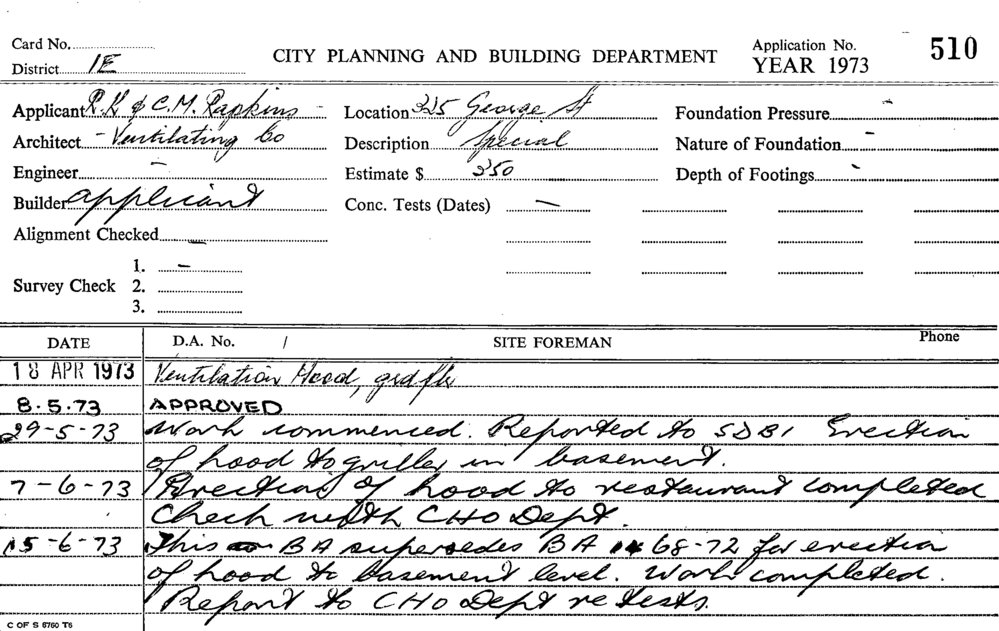 Card No.
District 1E
CITY PLANNING AND BUILDING DEPARTMENT
Application No. 510
YEAR 1973
Applicant R.K & C.M. Rapkins -
Location 325 George St
Foundation Pressure -
Architect - Ventilating Co
Description Special
Nature of Foundation -
Engineer -
Estimate $ 350
Depth of Footings -
Builder applicant
Conc. Tests (Dates) -
Alignment Checked -
Survey Check
1. -
2.
3.
DATE D.A. No. / SITE FOREMAN Phone
18 APR 1973 Ventilation Hood, grd flr
8.5.73 APPROVED
29-5-73 Work commenced. Reported to SDBI Erection
of hood to griller in basement.
7-6-73 Erection of hood to restaurant completed
Check with CHO Dept.
15-6-73 This BA supersedes BA 68-72 for erection
of hood to basement level. Work completed.
Report to CHO Dept re tests.
C OF S 8760 T6